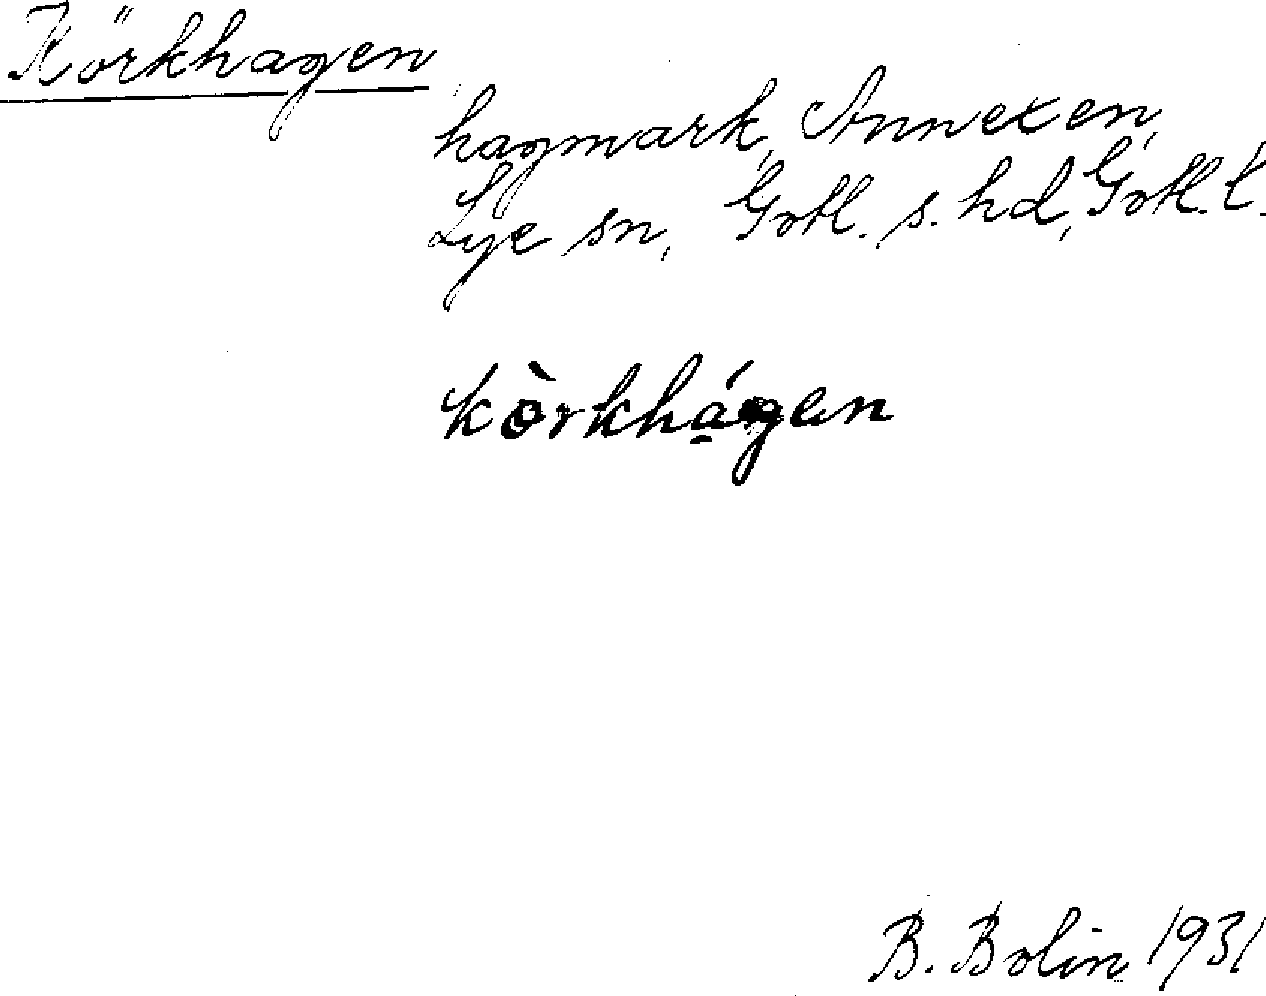 Körkhagen
hagmark, Annexen,
Lye sn, Gotl. s. hd, Gotl. l.
kòrkhá̱gen
B. Bolin 1931